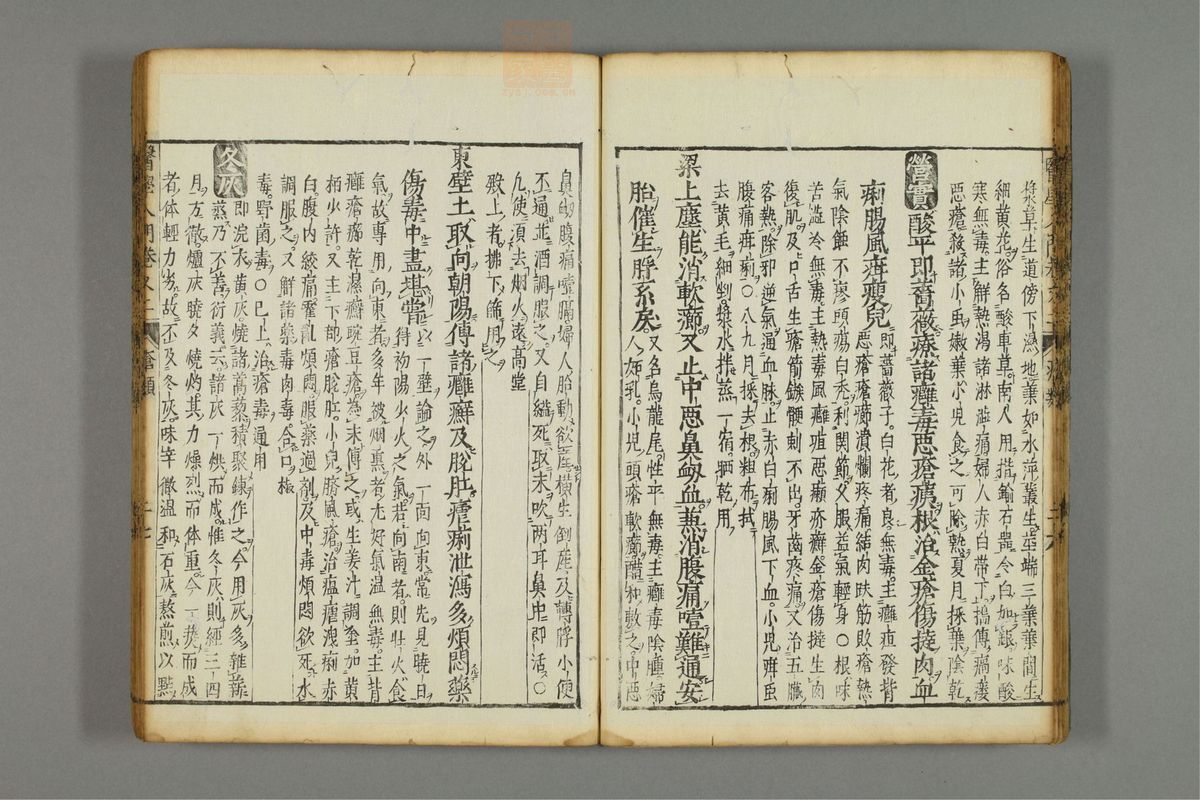 漿草生道傍下濕地葉如水萍叢生莖端三葉葉間生
細黃花俗名酸車草南人用揩鍮石器令白如銀味酸
寒無毒主解熱渴諸淋澁痛婦人赤白帶下搗傅瘑瘻
惡瘡殺諸小虫嫩葉小兒食之可除熱夏月採葉陰乾
營實酸平即薔薇療諸癰毒惡瘡癘根治金瘡傷撻肉血
痢腸風疳瘦兒即薔薇子白花者良無毒主癰疽發背
惡瘡瘡癩潰爛疼痛結肉跌筋敗瘡熱
氣陰蝕不瘳頭瘍白禿利關節久服益氣輕身〇根味
苦澁冷無毒主熱毒風癰疽惡癩疥癬金瘡傷撻生肉
復肌及口舌生瘡箭鏃骾刺不出牙齒疼痛又治五臟
客熱除邪逆氣通血脉止赤白痢腸風下血小兒疳虫
腹痛疳痢〇八九月採去根粗布拭
去黃毛細剉漿水拌蒸一宿晒乾用
梁上塵能消軟癤又止中惡鼻衂血蒸消腹痛噎難通安
胎催生胕系矣又名烏龍尾性平無毒主癰毒陰腫婦
人妬乳小兒頭瘡軟癤醋和敷之中惡
鼻衂腹痛噎膈婦人胎動欲産橫生倒産及轉脬小便
不通並酒調服之又自縊死取末吹兩耳鼻中即活〇
凡使須去烟火遠高堂
殿上者拂下篩用之
東壁土取向朝陽傅諸癰癬及脫肛瘧痢泄瀉多煩悶藥
傷毒中盡堪嘗以一壁論之外一面向東常先見曉日
得初陽少火之氣若向南者則壯火食
氣故專用向東者多年被烟熏者尤好氣温無毒主背
癰瘡癤乾濕癬豌豆瘡爲末傅之或生姜汁調塗如黃
柄少許又主下部瘡脫肛小兒臍風瘡治瘟瘧洩痢赤
白腹内絞痛霍亂煩悶服藥過劑及中毒煩悶欲死水
調服之又解諸藥毒肉毒合口椒
毒野菌毒〇已上治瘡毒通用
冬灰即浣衣黃灰燒諸蒿藜積聚鍊作之今用灰多雜薪
蒸乃不善衍義云諸灰一烘而成惟冬灰則經三四
月方徹爐灰曉夕燒灼其力燥烈而体重今一爇而成
者体輕力劣故不及冬灰味辛微温和石灰熬煎以點